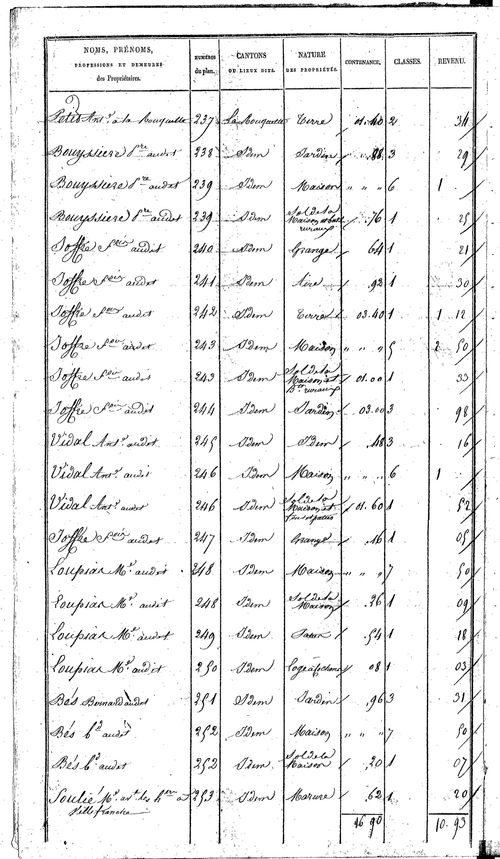 NOMS, PRÉNOMS, PROFESSIONS ET DEMEURES des Propriétaires. NUMÉROS du plan. CANTONS OU LIEUX DITS. NATURE DES PROPRIÉTÉS. CONTENANCE. CLASSES. REVENU.
Petit Ant. à la Rouquette 237 La Rouquette Terre 01.40 2 34
Bouyssiere P.re audit 238 Idem Jardin .88 3 29
Bouyssiere P.re audit 239 Idem Maison " " " 6 1
Bouyssiere P.re audit 239 Idem Sol de la Maison et bat. ruraux .76 1 25
Joffre audit 240 Idem Grange 64 1 21
Joffre audit 241 Idem Aire .92 1 30
Joffre audit 242 Idem Terre 03.40 1 1 12
Joffre audit 243 Idem Maison " " " 5 2 50
Joffre audit 243 Idem Sol de la Maison et B. ruraux 01.00 1 33
Joffre audit 244 Idem Jardin 03.00 3 98
Vidal Ant. audit 245 Idem Idem .48 3 16
Vidal Ant. audit 246 Idem Maison " " " 6 1
Vidal Ant. audit 246 Idem Sol de la Maison et 01.60 1 52
Joffre audit 247 Idem Grange .16 1 05
Loupias M. audit 248 Idem Maison " " " 7 50
Loupias M. audit 248 Idem Sol de la Maison .26 1 09
Loupias M. audit 249 Idem .54 1 18
Loupias M. audit 250 Idem Loge à cochons 08 1 03
Bés Bernard audit 251 Idem Jardin .96 3 31
Bés B.d audit 252 Idem Maison " " " 7 50
Bés B.d audit 252 Idem Sol de la Maison .20 1 07
Soulié M. les à 253 Idem Masure .62 1 20
Villefranche
16 90 10.93